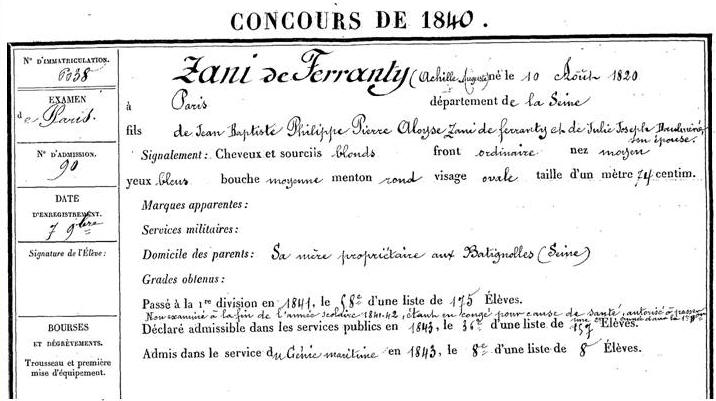 CONCOURS DE 1840.
N° D'IMMATRICULATION.
6038
EXAMEN
de Paris.
N° D'ADMISSION.
90
DATE
D'ENREGISTREMENT.
7 9bre
Signature de l'Élève:
BOURSES
ET DÉGRÈVEMENTS.
Trousseau et première
mise d'équipement.
Zani de Ferranty (Achille Auguste) né le 10 Août 1820
à Paris département de la Seine
fils de Jean Baptiste Philippe Pierre Aloyse Zani de ferranty et de Julie Joseph
son épouse.
Signalement: Cheveux et sourcils blonds front ordinaire nez moyen
yeux bleus bouche moyenne menton rond visage ovale taille d'un mètre 74 centim.
Marques apparentes:
Services militaires:
Domicile des parents: Sa mère propriétaire aux Batignolles (Seine)
Grades obtenus:
Passé à la 1re division en 1841, le 58e d'une liste de 175 Élèves.
Non examiné à la fin de l'année scolaire 1841-42, étant en congé pour cause de santé, autorisé à passer
une année dans la 1re
Déclaré admissible dans les services publics en 1843, le 36e d'une liste de 157 Élèves.
Admis dans le service du Génie maritime en 1843, le 8e d'une liste de 8 Élèves.